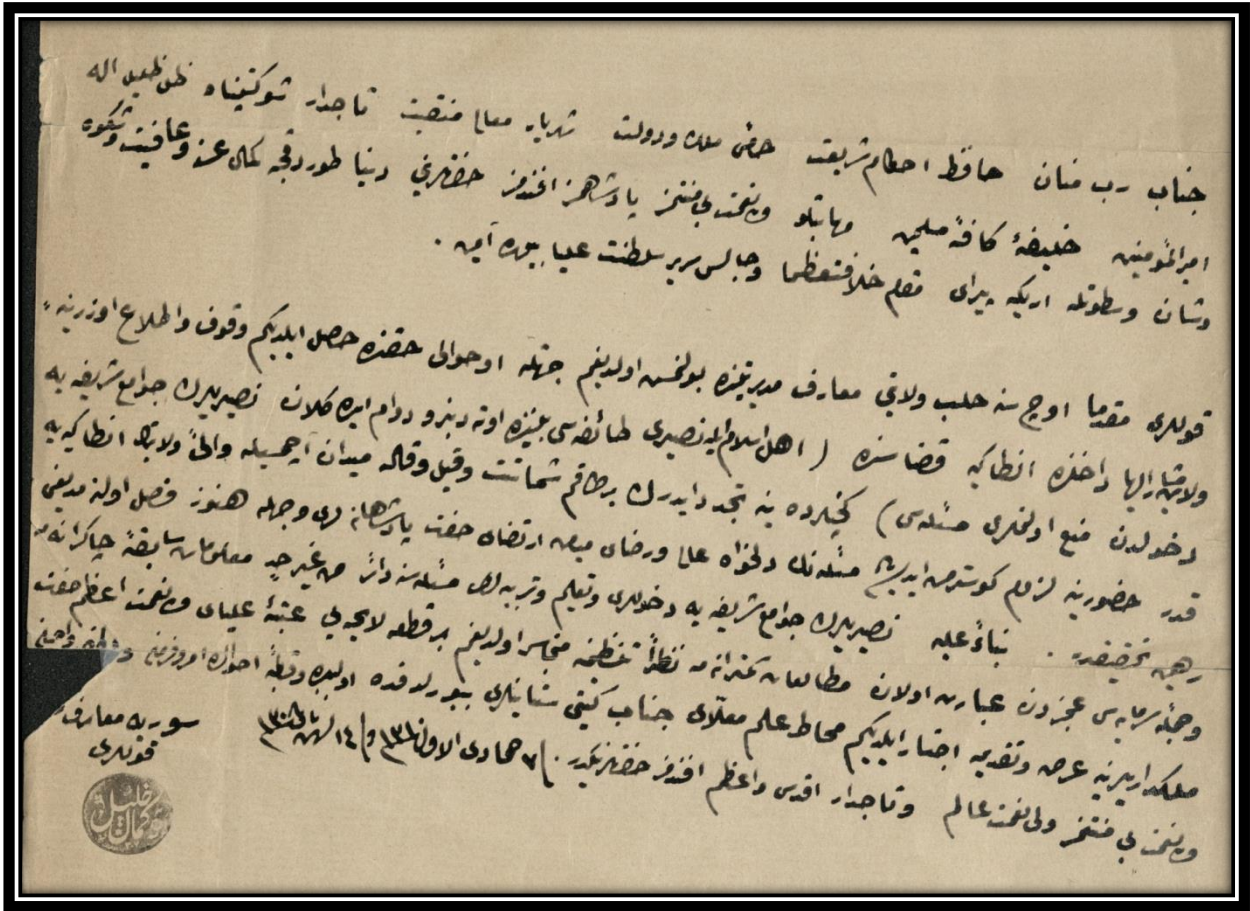 جناب رب منان حافظ احكام شريعت حامئ ملك ودولت شهريار معالى منقبت تاجدار شوكتپناه ظل ظليل اله
اميرالمؤمنين خليفۀ كافۀ مسلمين مهابتلو ولينعمت بى منتمز پادشاهمز افندمز حضرتلرينى دنيا طوردقجه كمال عز وعافيت وشكوه
وشان وسطوتله اريكه پيراى مقام خلافت عظما وجالس سرير سلطنت عليا بيوره آمين .
قوللرى مقدما اوچ سنه حلب ولايتى معارف مديريتنده بولنمش اولديغم جهتله او حوالى حقنده حاصل ايلديكم وقوف واطلاع اوزرينه
ولايت مشار اليها داخلنده انطاكيه قضاسنده ( اهل اسلام ايله نصيرى طائفه سى بيننده اوته دنبرو دوام ايده كلان نصيريلرك جوامع شريفه يه
دخولدن منع اولنملرى مسئله سى ) كچنلرده ينه تجدد ايدرك برطاقم شماتت وقيل وقاله ميدان آچمسيله والئ ولايتك انطاكيه يه
قدر حضورينه لزوم كوسترمش ايسه ده مسئله نك دلخواه عالى ورضاى ميامن ارتضاى حضرت پادشاهانه لرى وجهله هنوز فصل اولنه مديغى
رهين تحقيقدر . بناءً عليه نصيريلرك جوامع شريفه يه دخوللرى وتعليم وتربيه لرى مسئله سنه دائر من غير حد معلومات سابقۀ چاكرانه مه
وجمله سرمايه سى عجزدن عبارت اولان مطالعات كمترانه مه نظراً تنظيمنه متجاسر اولديغم بر قطعه لايحه يى عتبۀ علياى ولينعمت اعظم حضرت
ملكداريلرينه عرض وتقديمه اجتسار ايلديكم محاط علم معلاى جناب كيتى ستانيلرى بيورلدقده اولبابده وقاطبۀ احوالده امر وفرمان
ولينعمت بى منتمز ولى نعمت عالم وتاجدار اقدس واعظم افندمز حضرتلرينكدر . ٧ جمادى الاول ١٣١٠ و ١٤ ت١ ٣٠٨
سوريه معارف
قوللرى
خليل كمال